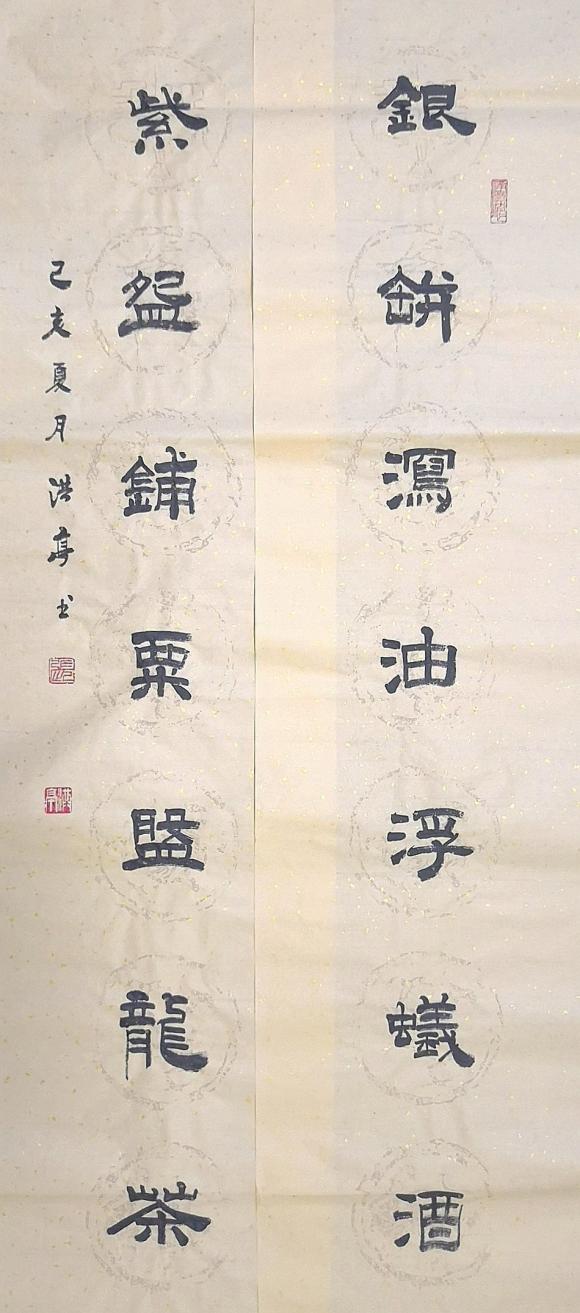 銀缾瀉油浮蟻酒
紫盌鋪粟盤龍茶
己亥夏月洪亭书